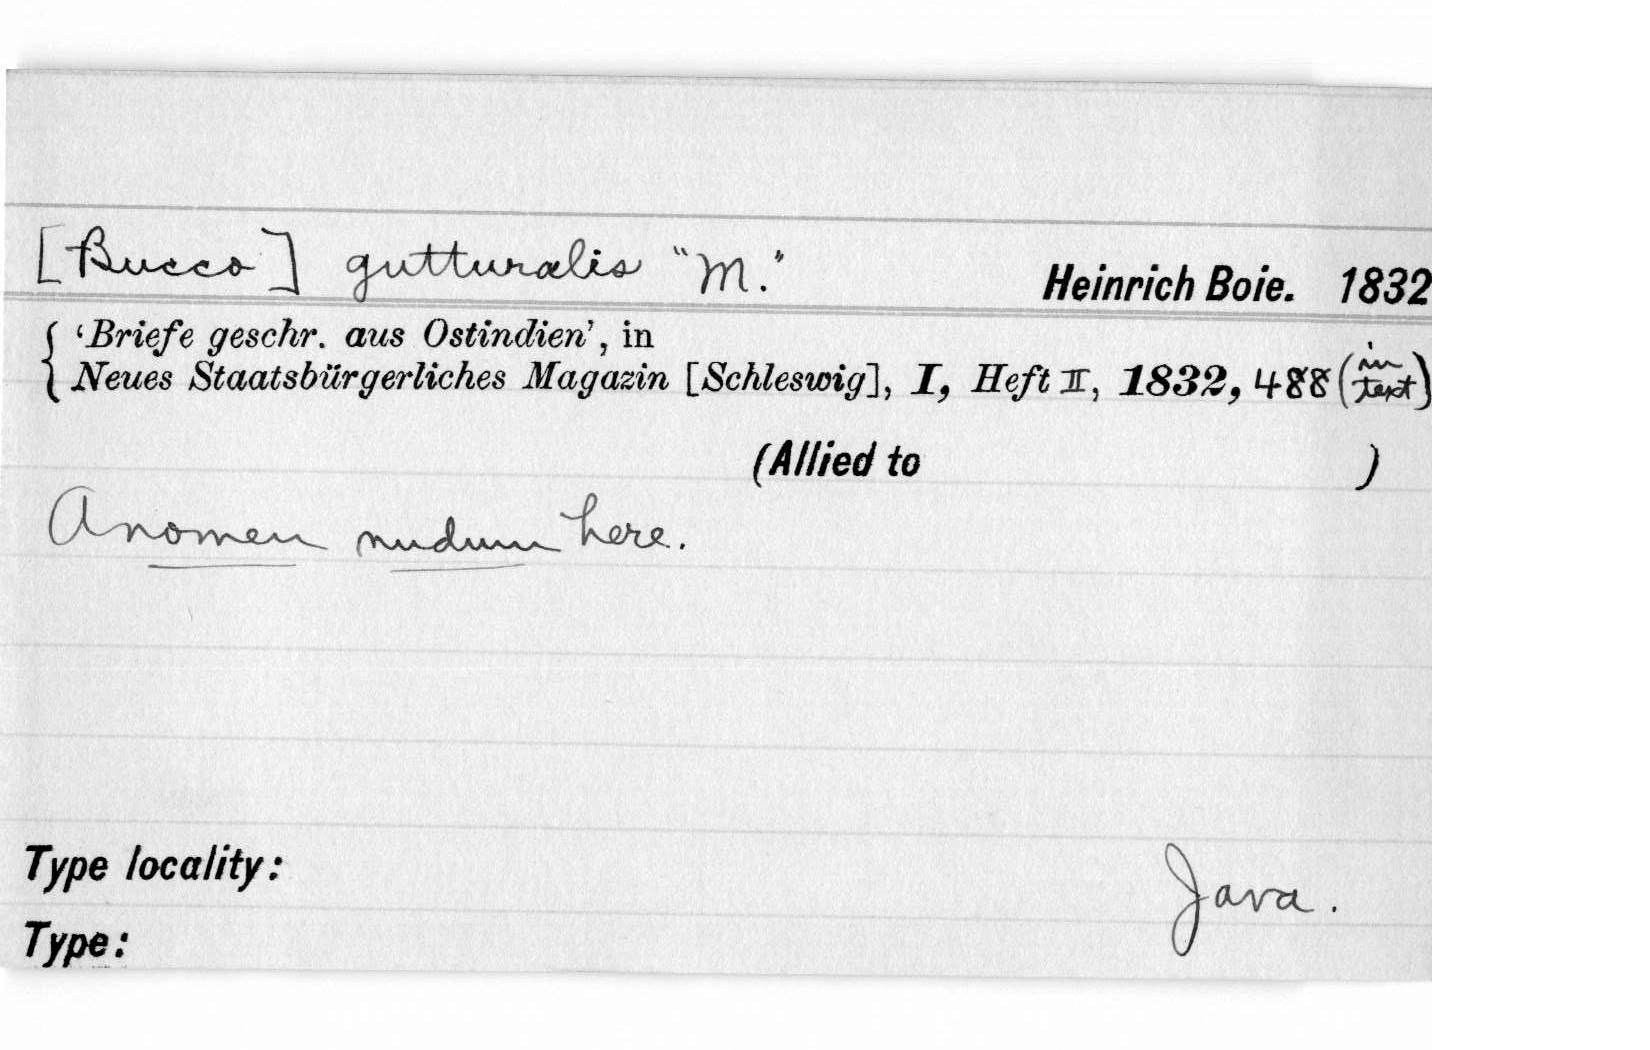 [Bucco] gutturalis "M." Heinrich Boie. 1832
'Briefe geschr. aus Ostindien', in
Neues Staatsbürgerliches Magazin [Schleswig], I, Heft II, 1832, 488 (in text)
(Allied to )
A nomen nudum here.
Type locality: Java.
Type: